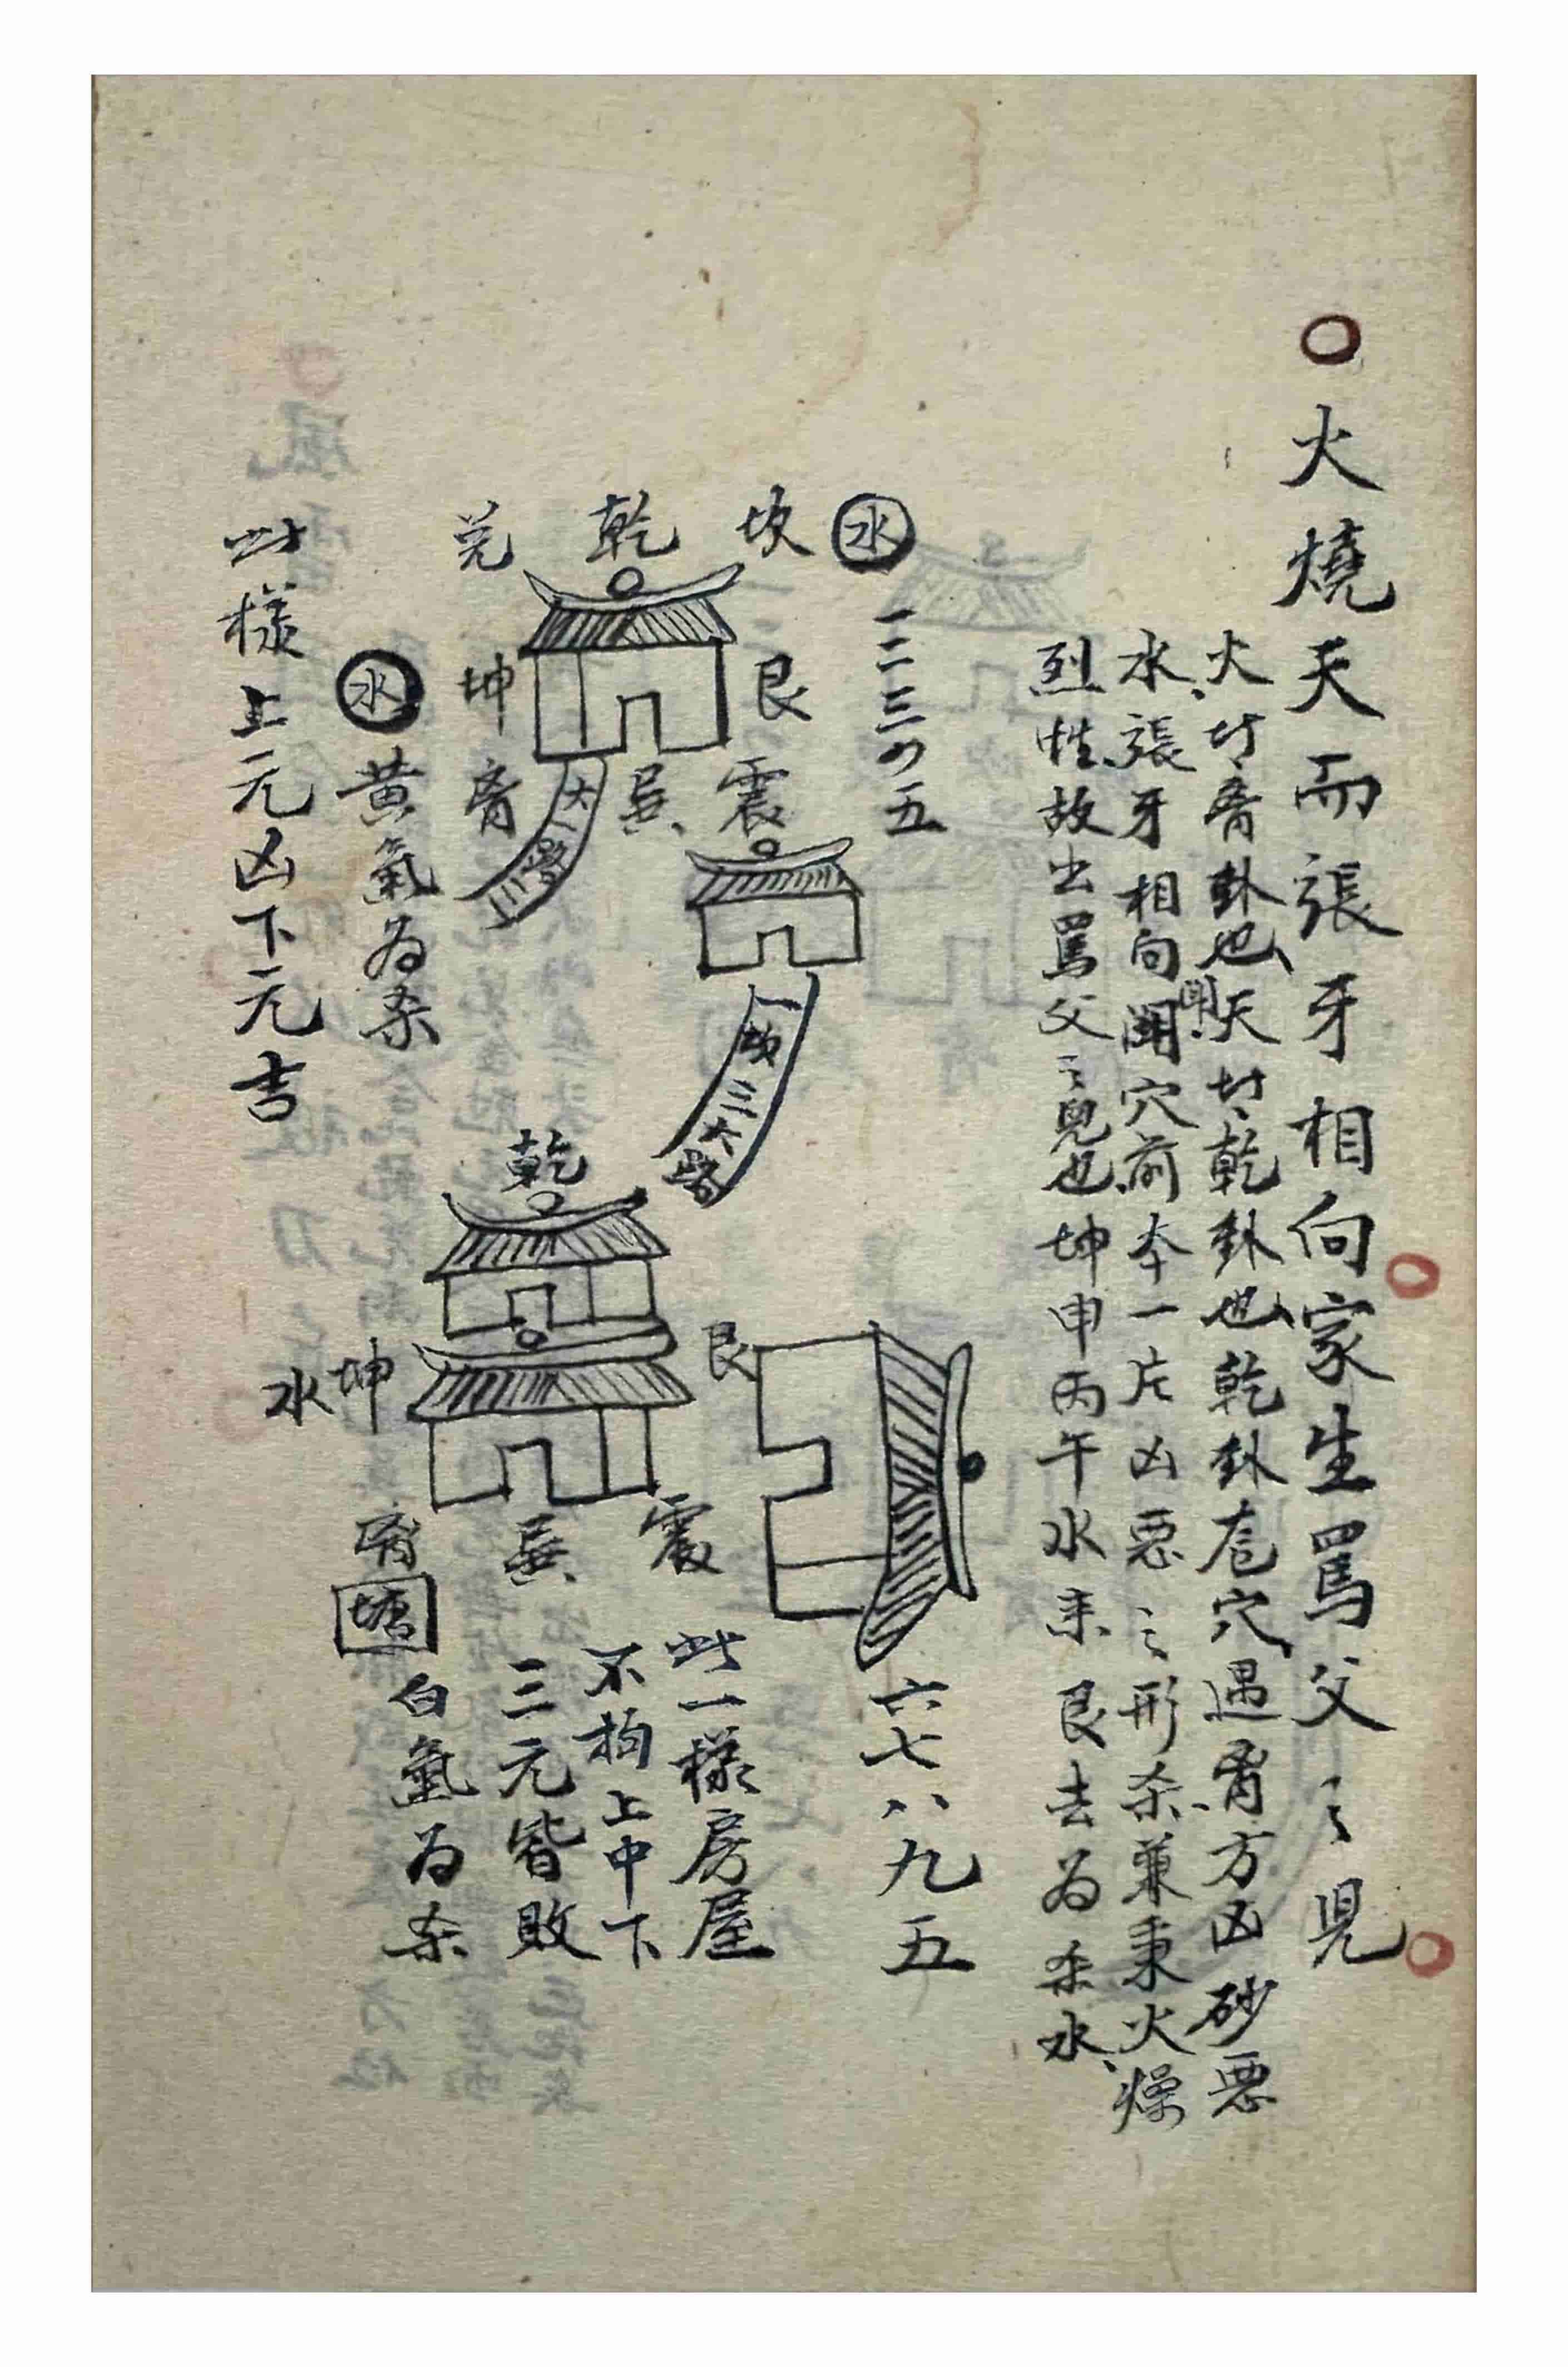 火燒天而張牙相向家生罵父之児
火廿离卦也天廿乾卦也乾卦扂穴遇离方凶砂惡
水張牙相向開穴前本一片凶惡之形杀兼秉火燥
烈性故出罵父之児也坤申丙午水来艮去為杀水
水
一二三四五
坎
乾
兌
艮
坤
水
震
巽
离
大路三
一坡三大路
黄氣為杀
此樣上元凶下元吉
乾
艮
坤
水
震
巽
离
塘
六七八九五
此一樣房屋
不拘上中下
三元皆敗
白氣為杀